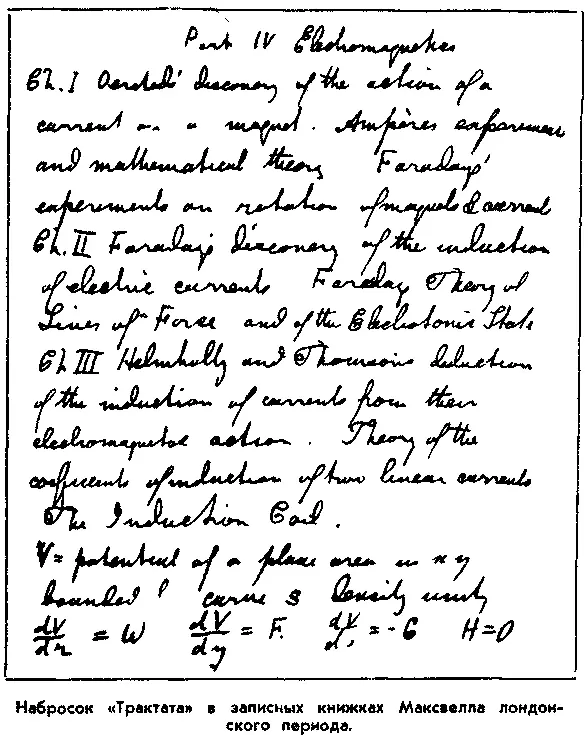 Part IV Electromagnetics
Ch. I Oersted's discovery of the action of a
current on a magnet. Ampère's experiment
and mathematical theory Faraday's
experiments on rotation of magnets & current
Ch. II Faraday's discovery of the induction
of electric currents Faraday Theory of
Lines of Force and of the Electrotonic State
Ch III Helmholtz and Thomson's deduction
of the induction of currents from their
electromagnetic action. Theory of the
coefficients of induction of two linear currents
The Induction Coil.
V = potential of a plane area in xy
bounded curve s Density unity
dV/dz = W dV/dy = F = - G H = 0
Набросок «Трактата» в записных книжках Максвелла лондон-
ского периода.